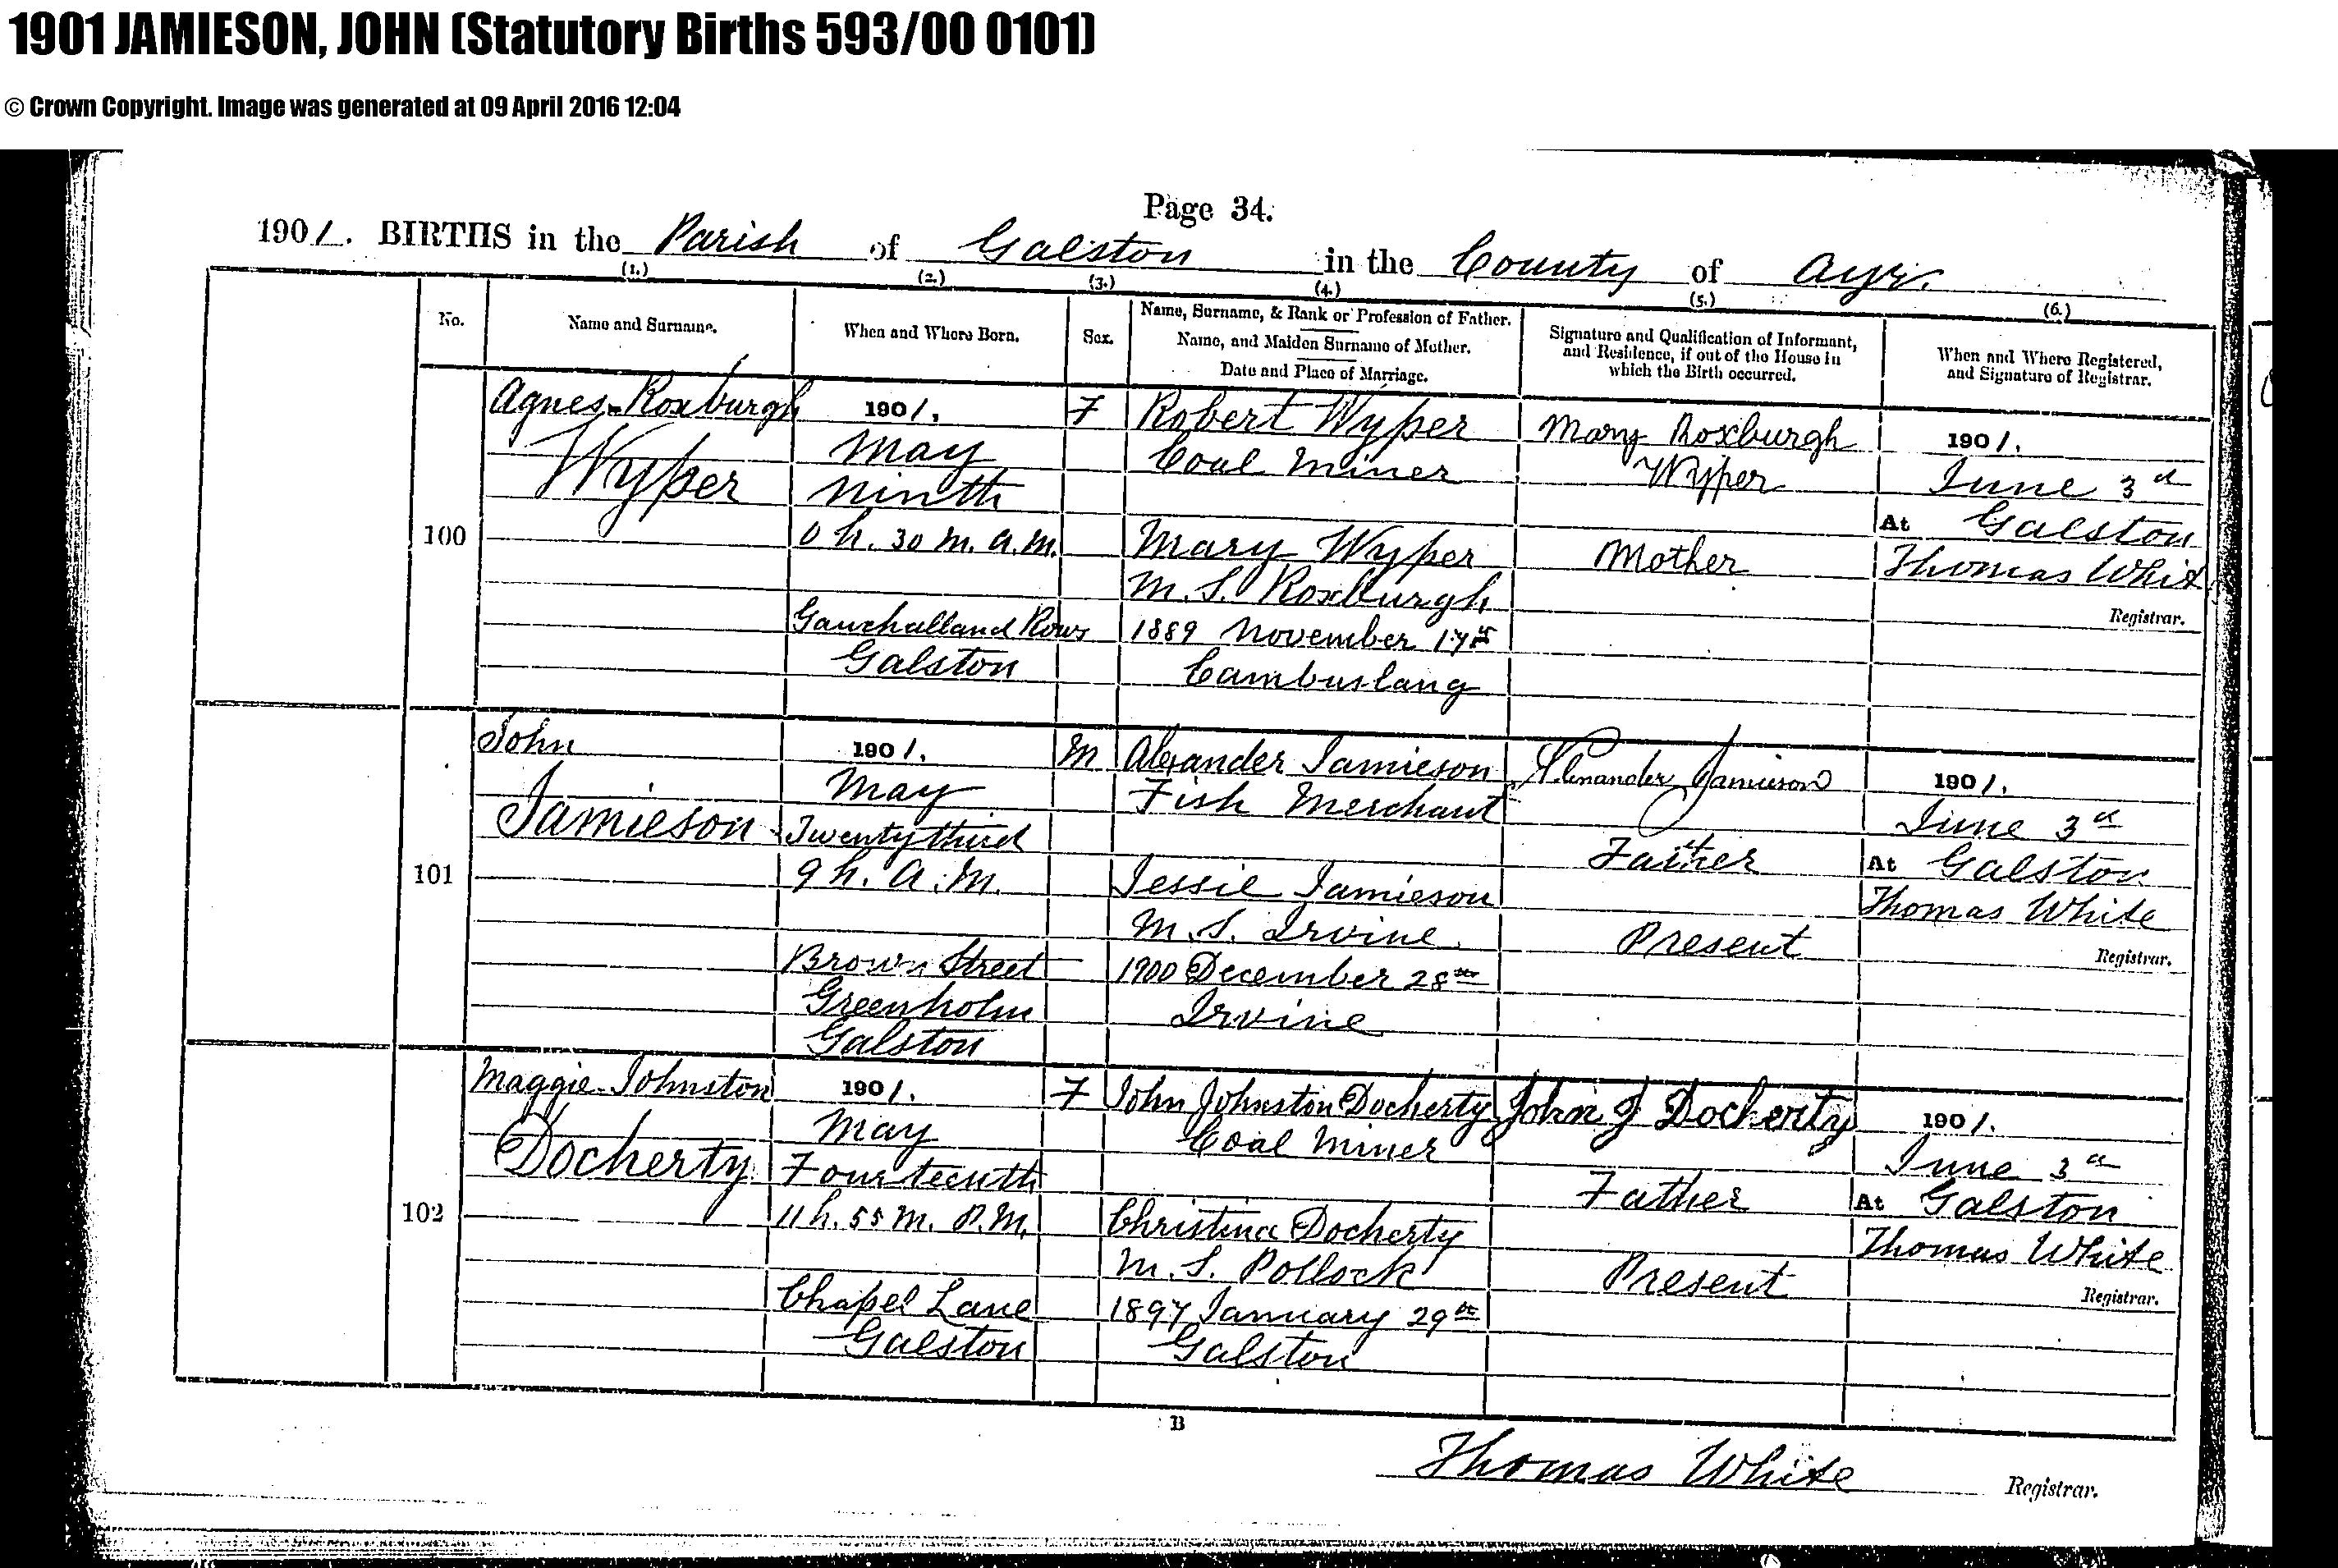 1901 JAMIESON, JOHN (Statutory Births 593/00 0101)
© Crown Copyright. Image was generated at 09 April 2016 12:04
Page 34.
1901. BIRTHS in the Parish of Galston in the County of Ayr.
(1.) (2.) (3.) (4.) (5.) (6.)
No.
Name and Surname.
When and Where Born.
Sex.
Name, Surname, & Rank or Profession of Father.
Name, and Maiden Surname of Mother.
Date and Place of Marriage.
Signature and Qualification of Informant,
and Residence, if out of the House in
which the Birth occurred.
When and Where Registered,
and Signature of Registrar.
100
Agnes Roxburgh
Wyper
1901,
May
Ninth
0 h. 30 m. A.M.
Gauchalland Rows
Galston
F
Robert Wyper
Coal Miner
Mary Wyper
M.S. Roxburgh
1889 November 17th
Cambuslang
Mary Roxburgh
Wyper
Mother
1901.
June 3d
At Galston
Thomas White
Registrar.
101
John
Jamieson
1901.
May
Twenty third
9 h. A.M.
Brown Street
Greenholm
Galston
M
Alexander Jamieson
Fish Merchant
Jessie Jamieson
M.S. Irvine
1900 December 28th
Irvine
Alexander Jamieson
Father
Present
1901.
June 3d
At Galston
Thomas White
Registrar.
102
Maggie Johnston
Docherty
1901.
May
Fourteenth
11 h. 55 m. P.M.
Chapel Lane
Galston
F
John Johnston Docherty
Coal Miner
Christina Docherty
M.S. Pollock
1897 January 29th
Galston
John J Docherty
Father
Present
1901.
June 3d
At Galston
Thomas White
Registrar.
B
Thomas White Registrar.